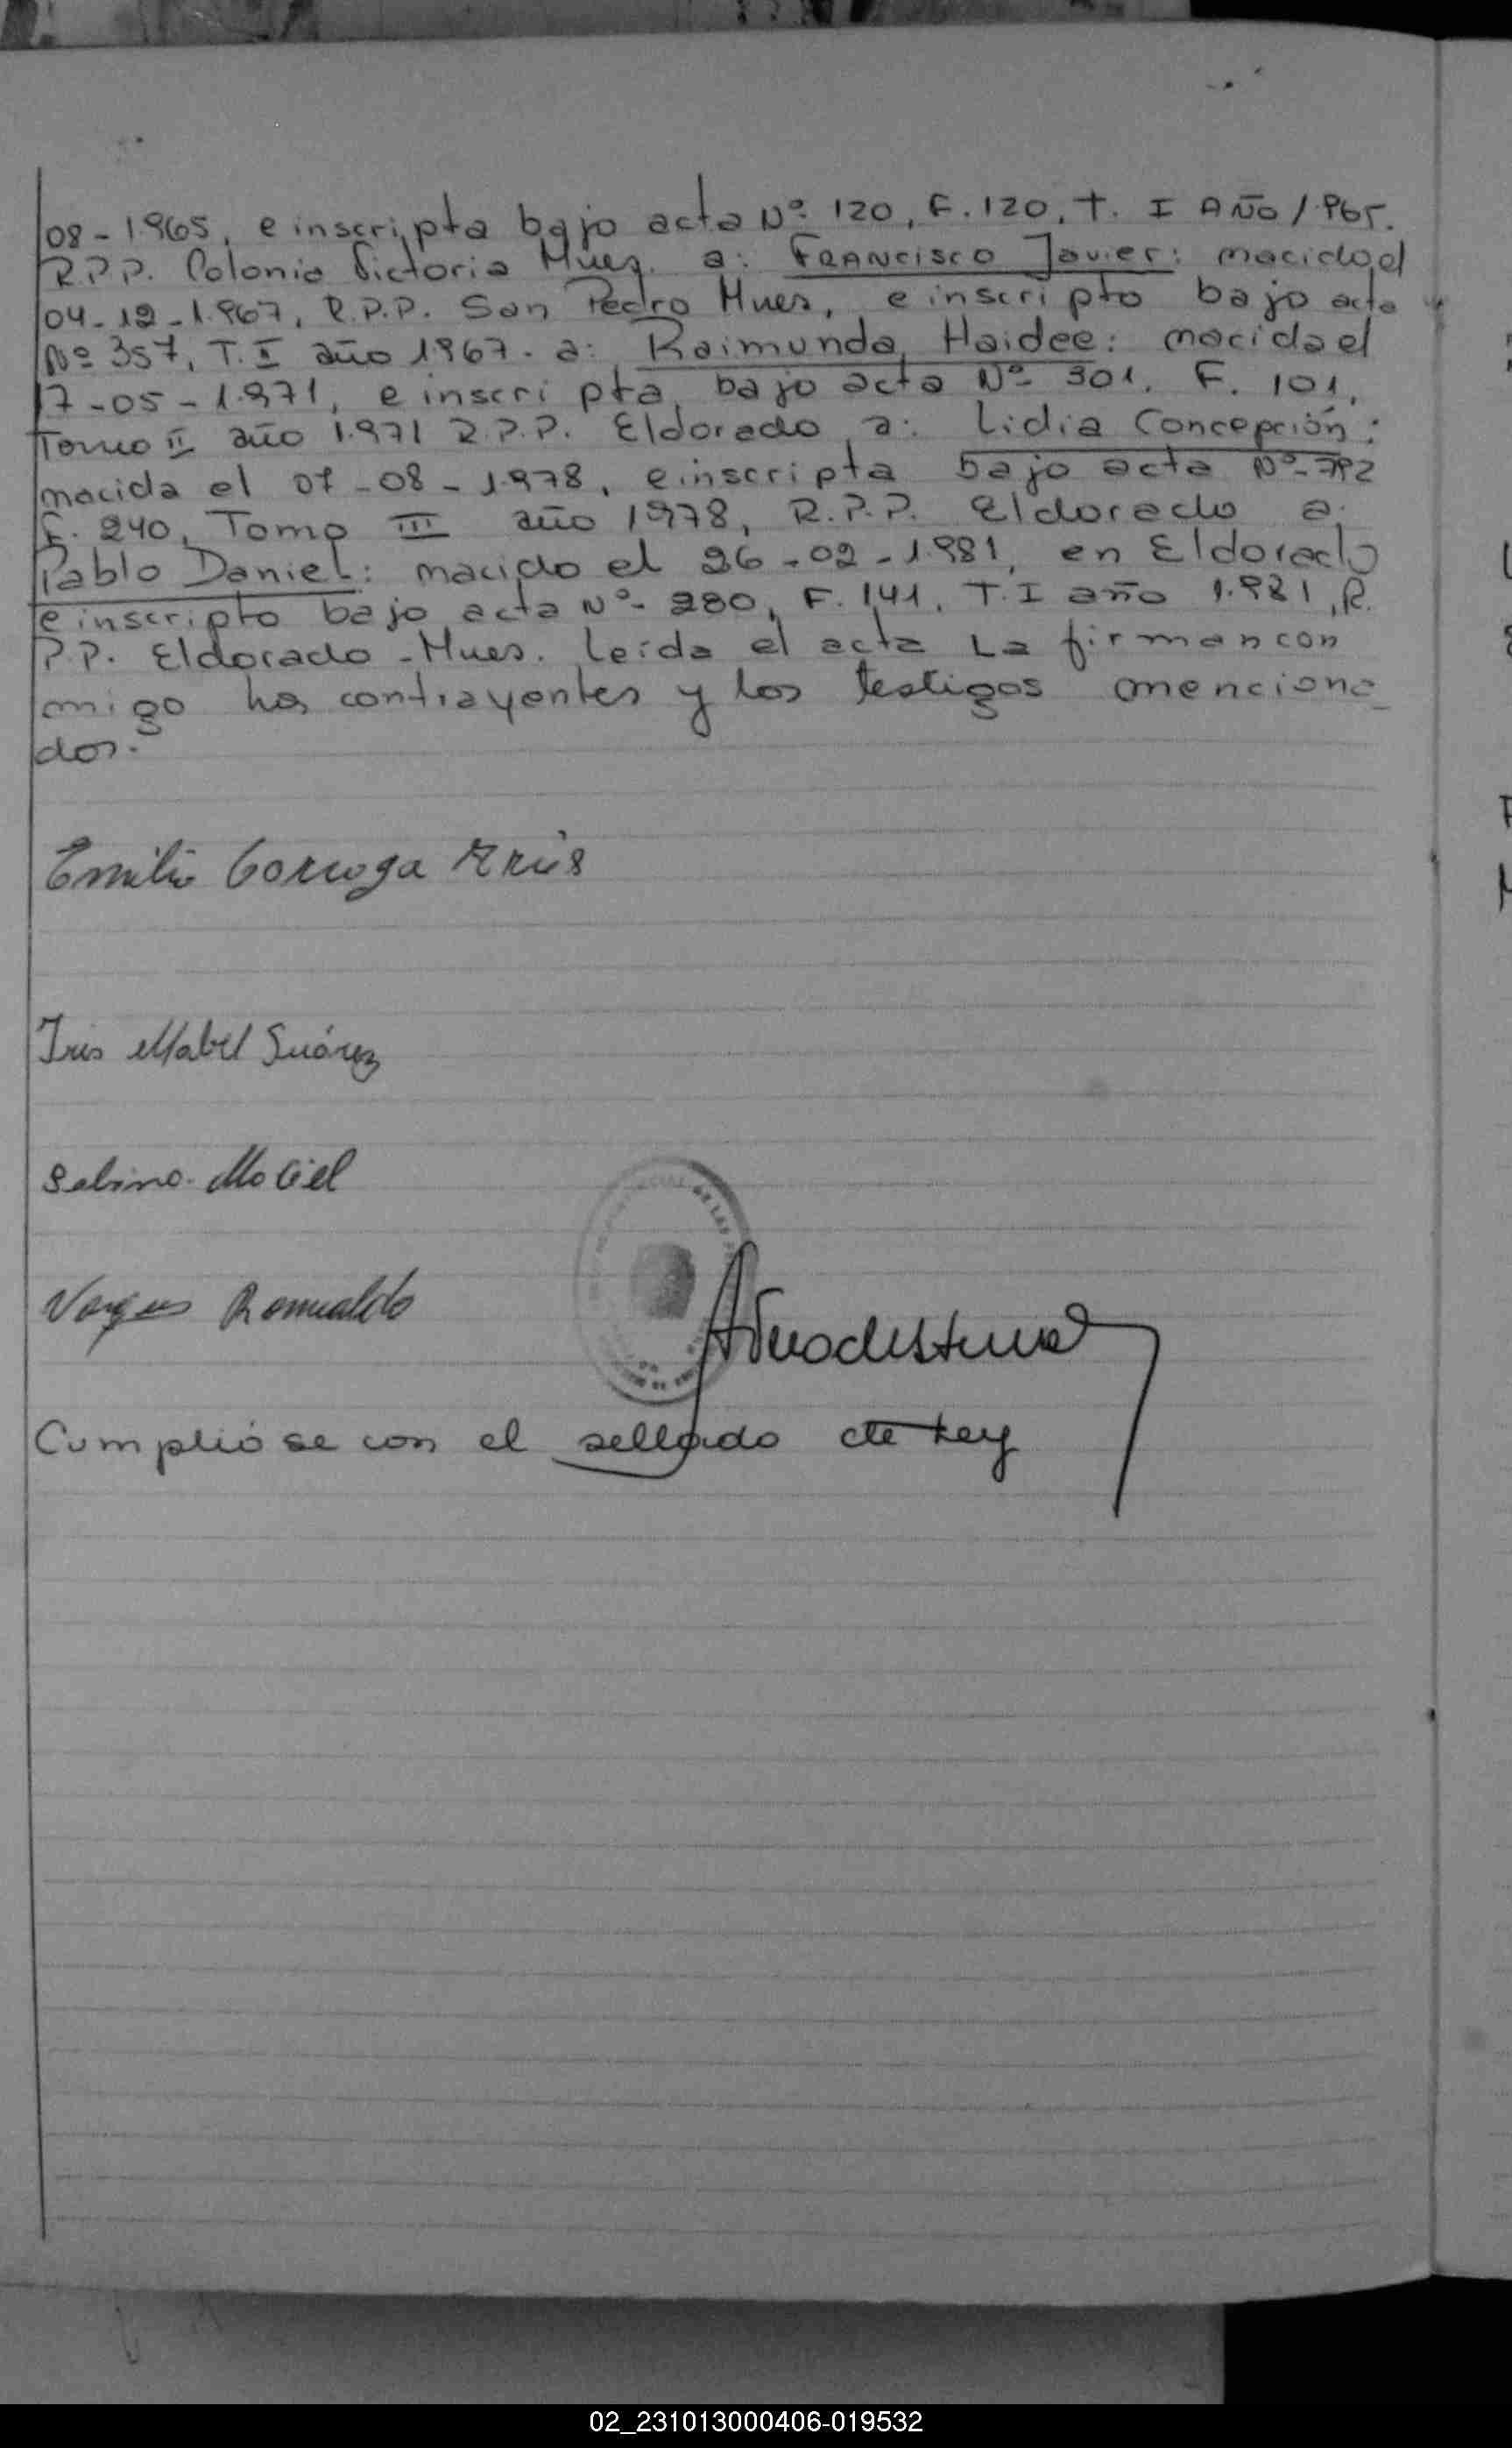 08-1.965, e inscripta bajo acta Nº 120, F. 120, T. I AÑO 1.965.
R.P.P. Colonia Victoria Mnes. a: FRANCISCO Javier: nacido el
04-12-1.967, R.P.P. San Pedro Mnes, e inscripto bajo acta
Nº 357, T. I año 1967. a: Raimunda Haidee: nacida el
17-05-1.971, e inscripta bajo acta Nº 301, F. 101,
Tomo II año 1.971 R.P.P. Eldorado a: Lidia Concepción:
nacida el 07-08-1.978, e inscripta bajo acta Nº 792
F. 240, Tomo III año 1978, R.P.P. Eldorado a:
Pablo Daniel: nacido el 26-02-1.981, en Eldorado
e inscripto bajo acta Nº 280, F. 141, T. I año 1.981, R.
P.P. Eldorado - Mnes. Leída el acta La firman con
migo los contrayentes y los testigos menciona_
dos.
Emilio
Iris Mabel Suárez
Sabino Maciel
Vargas Romualdo
Cumplióse con el sellado de Ley
02_231013000406-019532